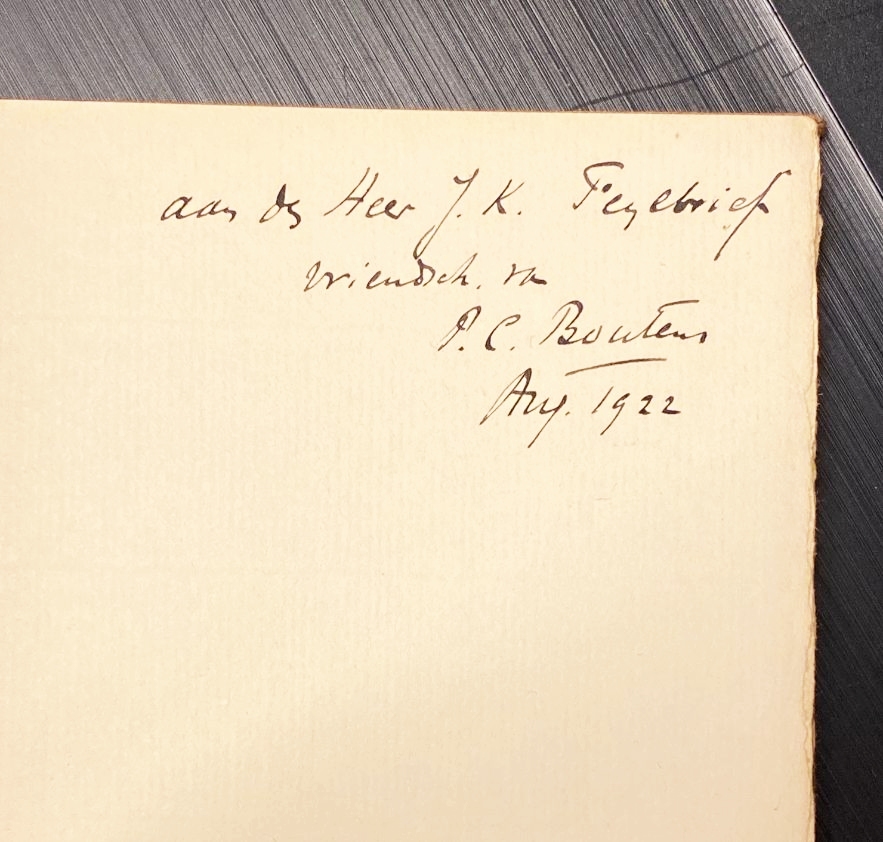 aan den Heer J. K. Feylbrief
vriendsch. van
P. C. Boutens
Aug. 1922